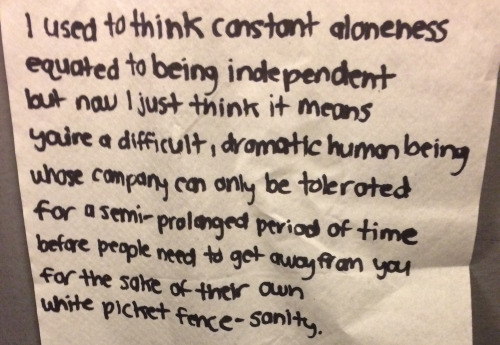 I used to think constant aloneness
equated to being independent
but now I just think it means
you're a difficult, dramatic human being
whose company can only be tolerated
for a semi-prolonged period of time
before people need to get away from you
for the sake of their own
white picket fence-sanity.